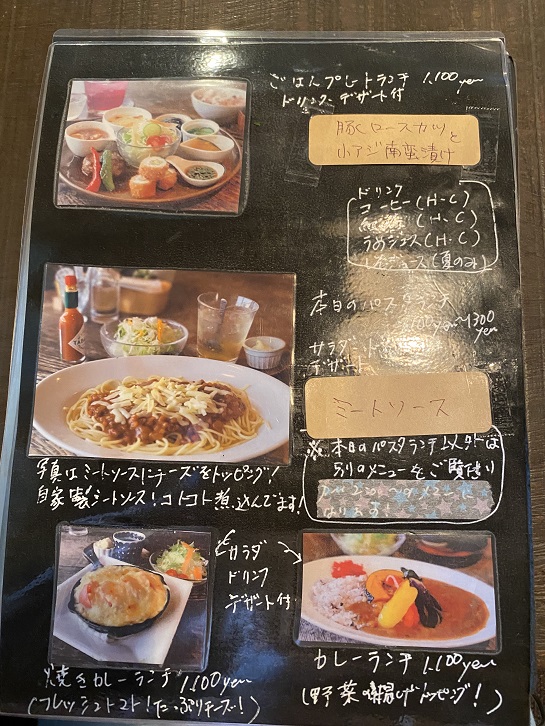 ごはんプレートランチ 1,100yen
ドリンク デザート付
豚ロースカツと
小アジ南蛮漬け
ドリンク
コーヒー(H・C)
紅茶(H・C)
うめジュース(H・C)
ジュース(夏のみ)
本日のパスタランチ
~1300
yen
サラダ
デザート
ミートソース
※本日のパスタランチ以外は
別のメニューをご覧使り
写真はミートソースにチーズをトッピング!
自家製ミートソース!コトコト煮込んでます!
サラダ
ドリンク
デザート付
焼きカレーランチ 1,100yen
(フレッシュトマト!たっぷりチーズ!)
カレーランチ 1,100yen
(野菜の素揚げトッピング!)